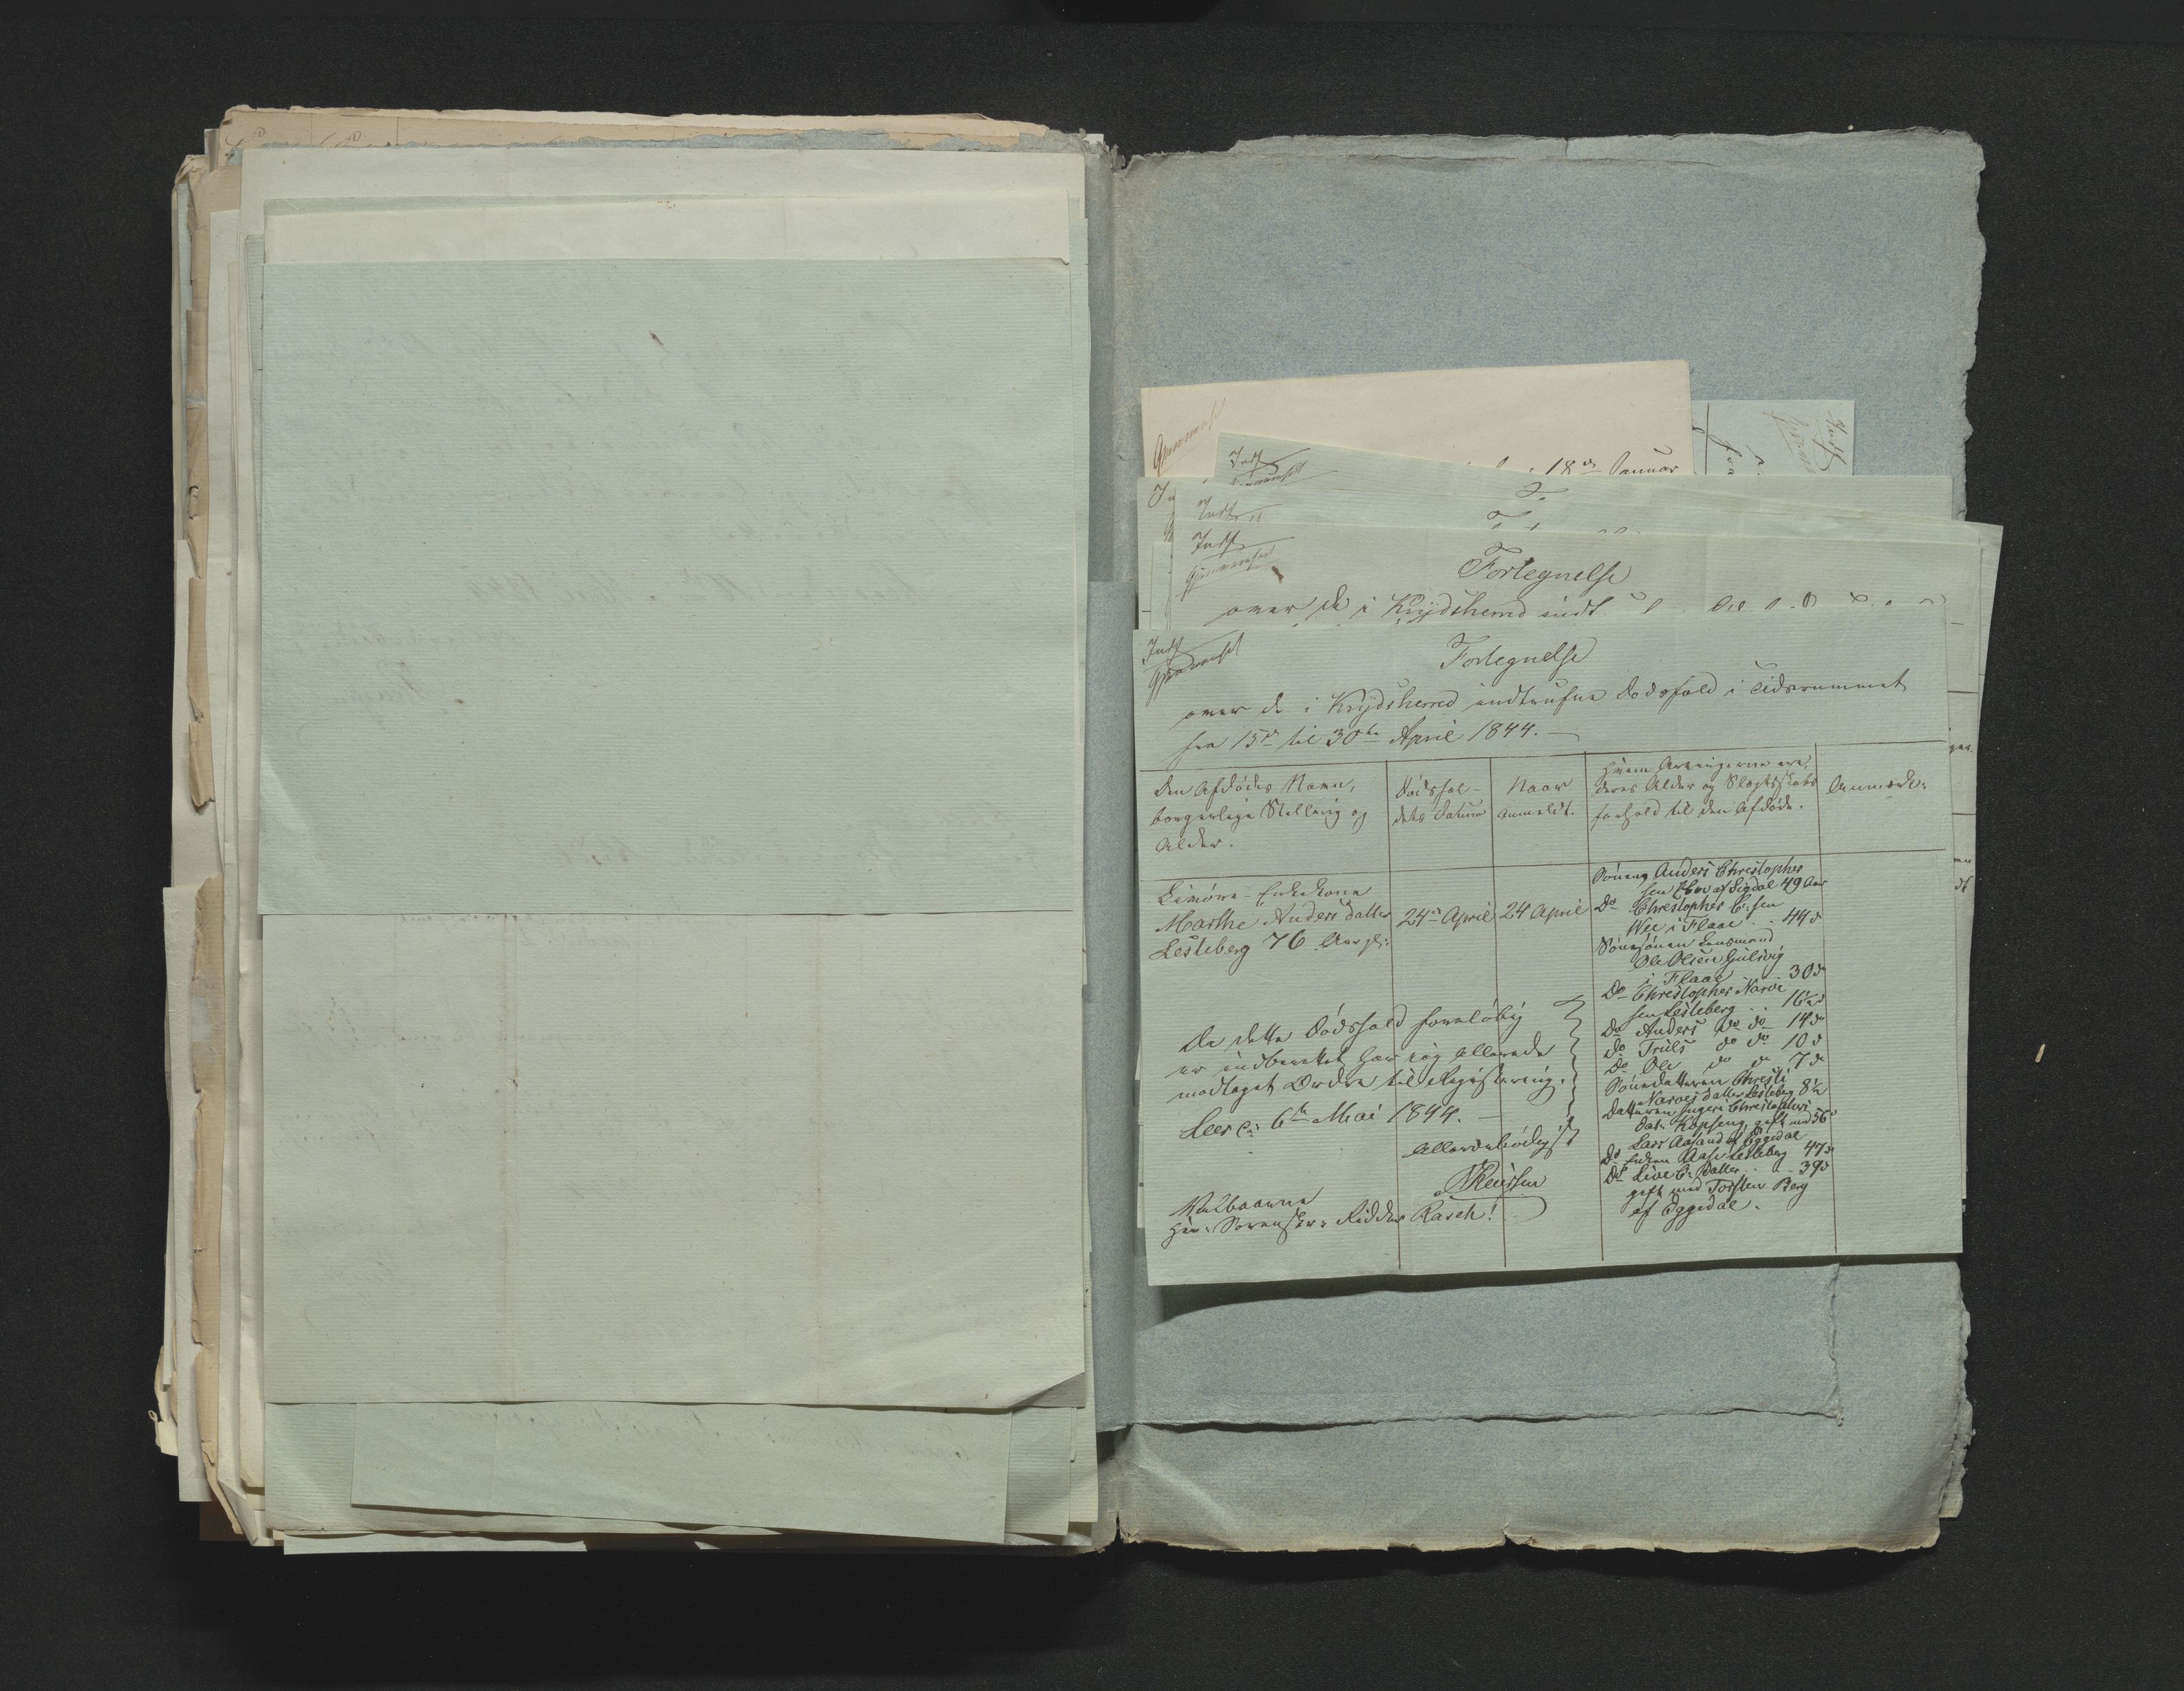 18de Januar
Indf
Indf
Indf
Fortegnelse
over de i Krydsherred indt
Indf
Fortegnelse
over de i Krydsherred indtrufne Dødsfald i Tidsrummet
fra 15de til 30te April 1844.
Den Afdødes Navn,
borgerlige Stilling og
Alder.
Dødsfal-
dets Datum
Naar
anmeldt.
Hvem Arvingerne ere,
deres Alder og Slægtskabs
forhold til den Afdøde.
Anmærk:
Enkekone
Marthe Anders datter
Lesteberg 76 Aar gl:
24de April
24 April
Sønnen Anders Christopher
sen af Sigdal 49 Aar
Do Christopher C:sen
Wee i Flaae . . 44 d
Sønnesønnen Lensmand
Ole Olsen Gulsvig
i Flaae 30 do
Do Christopher Narve
sen Lesteberg . . 16 do
Do Anders do do 14 do
Do Truls do do 10 d
Do Ole do do 7 do
Sønnedatteren Christi
Narvesdatter Lesteberg 8½
Datteren Ingeri Christophers
dat: Kopseng, gift med 56 d
Lars Aasand af Eggedal
Do Enken Aase Lesteberg 47 do
Do Live C: Datter . . 39 d
gift med Torsten Berg
af Eggedal.
Da dette Dødsfald foreløbig
er indberettet har jeg allerede
modtaget Ordre til Registrering.
Leer d: 6te Mai 1844.
Allerærbødigst
Velbaarne
Hr: Sorensk: Ridder Rasch!